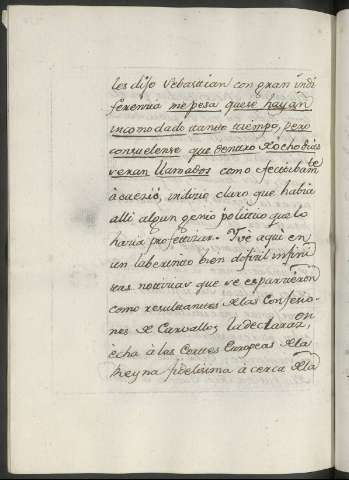 les dijo Sebastian con gran indi
ferencia me pesa que se hayan
incomodado tanto tiempo, pero
consuelense que dentro de ocho dias
seran llamados como efectibamte
acaeció, indizio claro que habia
alli algun genio politico que lo
hacia profetizar. Tve aqui en
un laberinto bien dificil infini
tas noticias que se esparcieron
como resultantes de las Confesio-
nes de Carvallo, la declaraz.on
echa à las Cortes Europeas de la
Reyna fidelisima a cerca de la